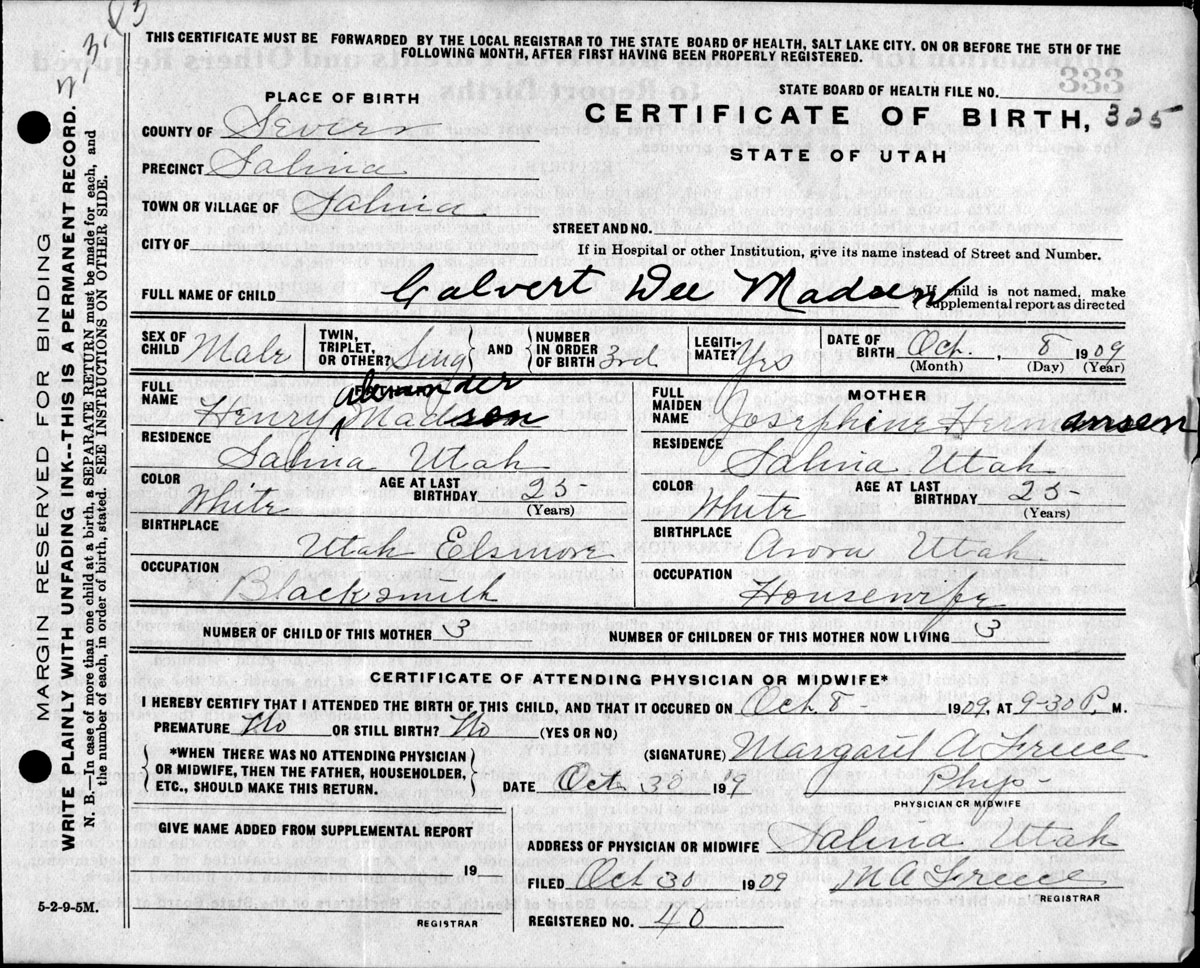 THIS CERTIFICATE MUST BE FORWARDED BY THE LOCAL REGISTRAR TO THE STATE BOARD OF HEALTH, SALT LAKE CITY. ON OR BEFORE THE 5TH OF THE
FOLLOWING MONTH, AFTER FIRST HAVING BEEN PROPERLY REGISTERED.
333
STATE BOARD OF HEALTH FILE NO.
PLACE OF BIRTH
CERTIFICATE OF BIRTH, 325
COUNTY OF Sevier
STATE OF UTAH
PRECINCT Salina
TOWN OR VILLAGE OF Salina
STREET AND NO.
CITY OF
If in Hospital or other Institution, give its name instead of Street and Number.
FULL NAME OF CHILD Calvert Dee Madsen If child is not named, make supplemental report as directed
SEX OF CHILD Male TWIN, TRIPLET, OR OTHER? Sing AND NUMBER IN ORDER OF BIRTH 3rd LEGITIMATE? Yes DATE OF BIRTH Oct. , 8 1909
(Month) (Day) (Year)
FULL NAME Henry Alexander Madsen
MOTHER
FULL MAIDEN NAME Josephine Hermansen
RESIDENCE Salina Utah
RESIDENCE Salina Utah
COLOR White AGE AT LAST BIRTHDAY 25 (Years)
COLOR White AGE AT LAST BIRTHDAY 25 (Years)
BIRTHPLACE Utah Elsinore
BIRTHPLACE Arora Utah
OCCUPATION Blacksmith
OCCUPATION Housewife
NUMBER OF CHILD OF THIS MOTHER 3 NUMBER OF CHILDREN OF THIS MOTHER NOW LIVING 3
CERTIFICATE OF ATTENDING PHYSICIAN OR MIDWIFE*
I HEREBY CERTIFY THAT I ATTENDED THE BIRTH OF THIS CHILD, AND THAT IT OCCURED ON Oct 8 - 1909, AT 9-30 P. M.
PREMATURE No OR STILL BIRTH? No (YES OR NO)
*WHEN THERE WAS NO ATTENDING PHYSICIAN
OR MIDWIFE, THEN THE FATHER, HOUSEHOLDER,
ETC., SHOULD MAKE THIS RETURN.
(SIGNATURE) Margaret A Freece
Phys
PHYSICIAN OR MIDWIFE
DATE Oct 30 19 9
GIVE NAME ADDED FROM SUPPLEMENTAL REPORT
19
REGISTRAR
ADDRESS OF PHYSICIAN OR MIDWIFE Salina Utah
FILED Oct 30 1909 M A Freece
REGISTRAR
REGISTERED NO. 40
5-2-9-5M.
MARGIN RESERVED FOR BINDING
WRITE PLAINLY WITH UNFADING INK--THIS IS A PERMANENT RECORD.
N. B.—In case of more than one child at a birth, a SEPARATE RETURN must be made for each, and
the number of each, in order of birth, stated. SEE INSTRUCTIONS ON OTHER SIDE.